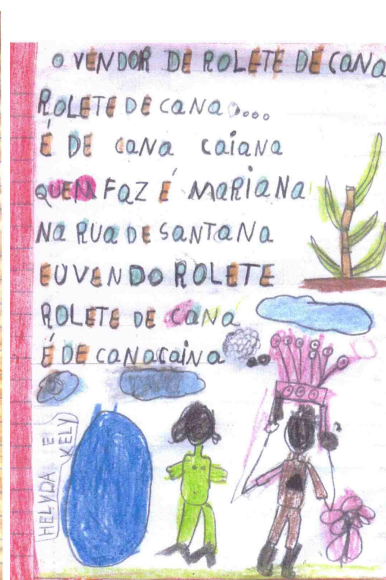 O VENDOR DE ROLETE DE CANA
ROLETE DE CANA....
É DE CANA CAIANA
QUEM FAZ É MARIANA
NA RUA DE SANTANA
EU VENDO ROLETE
ROLETE DE CANA
É DE CANACAINA
HELYDA E
KELY